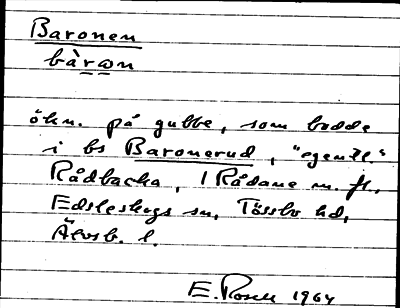 Baronen
bàrωn
ökn. på gubbe, som bodde
i bs Baronerud, "egentl."
Rådbacka, 1 Rådane m. fl.
Edsleskogs sn, Tössbo hd,
Älvsb. l.
E. Rosell 1964